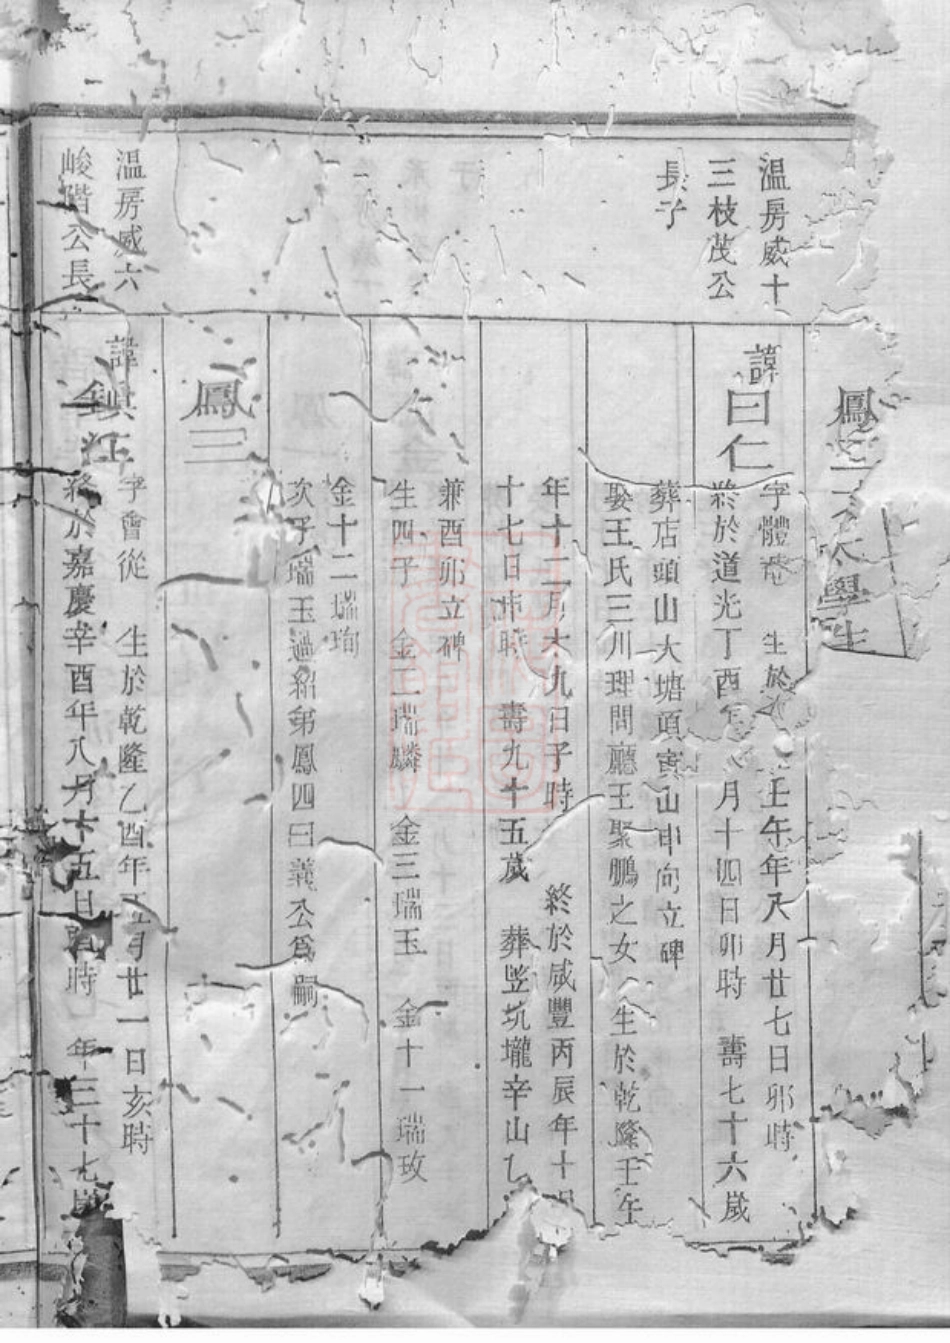 溫房威十
三枝茂公
長子
鳳二 太學生
諱曰仁
字體 生於 壬午年八月廿七日卯時
終於道光丁酉年八月十四日卯時 壽七十六歲
葬店頭山大塘頭寅山申向立碑
娶王氏三川理問廳王聚鵬之女 生於乾隆壬午
年十二月 九日子時 終於咸豐丙辰年十
十七日 時 壽九十五歲 葬竺坑壠辛山乙
兼酉卯立碑
生四子 金二瑞麟 金三瑞玉 金十一瑞玫
金十二瑞珣
次子瑞玉過紹第鳳四曰義公為嗣
鳳三
溫房威六
峻階公長
諱
字會從 生於乾隆乙酉年五月廿一日亥時
終於嘉慶辛酉年八月十五日酉時 年三十七歲